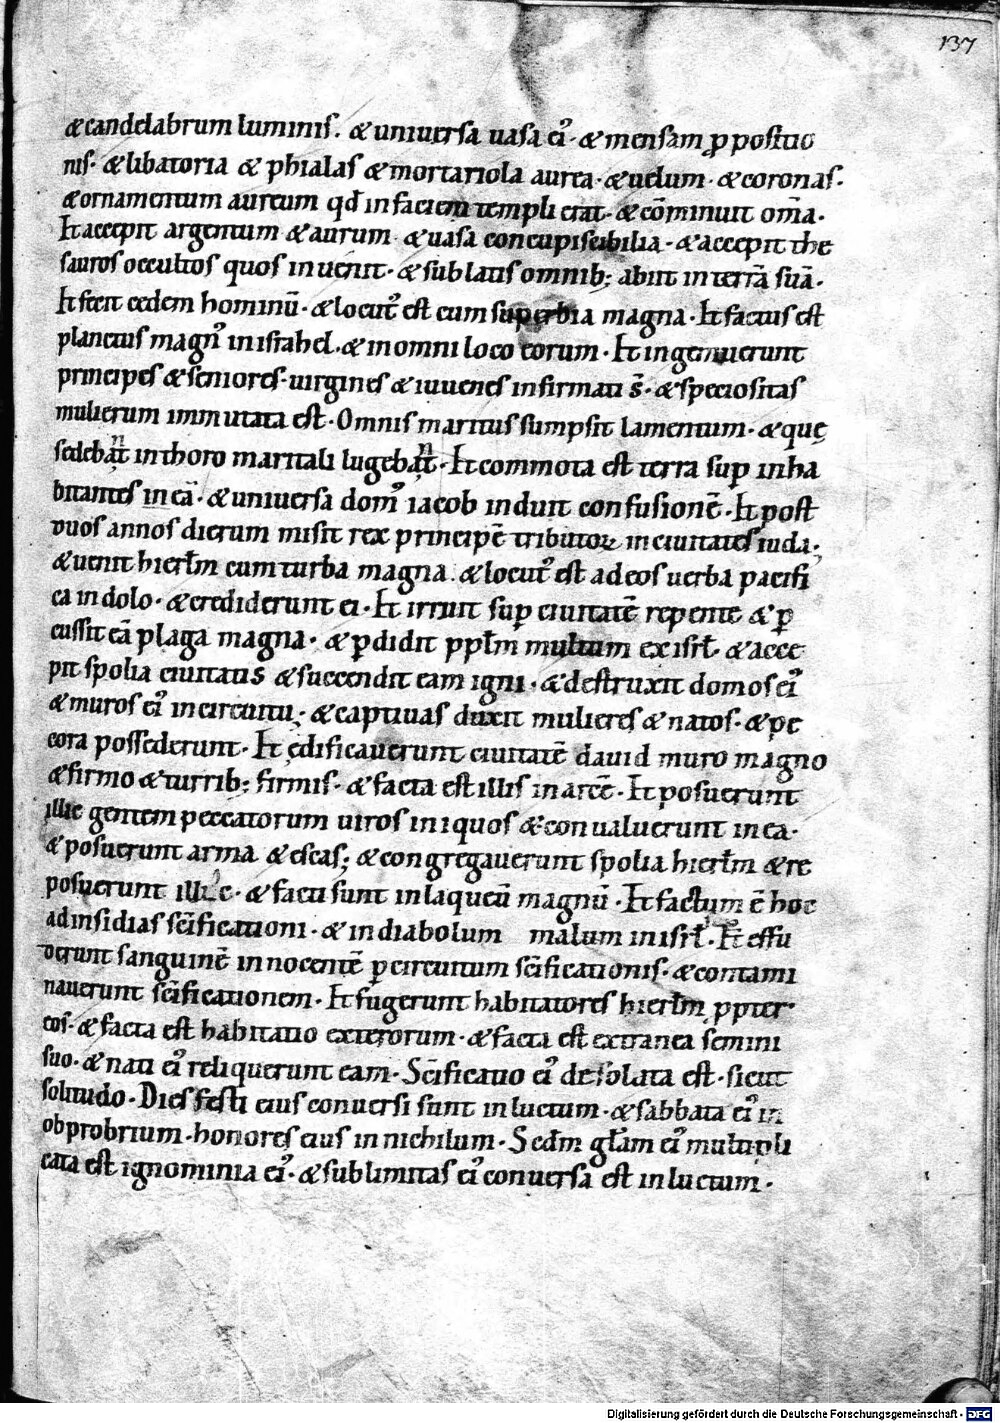 137
& candelabrum luminis. & uniuersa uasa ei᾽ · & mensam ꝓpositio
nis · & libatoria & phialas & mortariola aurea · & uelum · & coronas ·
& ornamentum aureum qd̓ in faciem templi erat · & cōminuit om̄a ·
Et accepit argentum & aurum & uasa concupiscibilia · & accepit the
sauros occultos quos inuenit · & sublatis omnib; abiit in terrā suā ·
Et fecit cedem hominū · & locut᾽ est cum superbia magna · Et factus est
planctus magn᾽ in israhel · & in omni loco eorum · Et ingemuerunt
principes & seniores · uirgines & iuuenes infirmati s̄ · & speciositas
mulierum immutata est · Omnis maritus sumpsit lamentum · & quę
sedebat̄ in thoro maritali lugebat̄ · Et commota est terra suꝑ inha
bitantes in ea · & uniuersa dom᾽ iacob induit confusionē · Et post
duos annos dierum misit rex principē tributoꝝ in ciuitates iuda ·
& uenit hierl̄m cum turba magna · & locut᾽ est ad eos uerba pacifi
ca in dolo · & crediderunt ei · Et irruit suꝑ ciuitatē repente & ꝑ
cussit eā plaga magna · & ꝑdidit ppl̄m multum ex isrl̄ · & acce
pit spolia ciuitatis & succendit eam igni · & destruxit domos ei᾽
& muros ei᾽ in circuitu; & captiuas duxit mulieres & natos · & pe
cora possederunt · Et ędificauerunt ciuitatē dauid muro magno
& firmo & turrib; firmis · & facta est illis in arcē · Et posuerunt
illic gentem peccatorum uiros iniquos & conualuerunt in ea ·
& posuerunt arma & escas; & congregauerunt spolia hierl̄m & re
posuerunt illic · & facti sunt in laqueū magnū · Et factum ē hoc
ad insidias sc̄ificationi · & in diabolum malum in isrl̄ · Et effu
derunt sanguinē innocentē ꝑ circuitum sc̄ificationis · & contami
nauerunt sc̄ificationem · Et fugerunt habitatores hierl̄m ꝓpter
eos · & facta est habitatio exterorum · & facta est extranea semini
suo · & nati ei᾽ reliquerunt eam · Sc̄ificatio ei᾽ desolata est · sicut
solitudo · Dies festi eius conuersi sunt in luctum · & sabbata ei᾽ in
obprobrium · honores eius in nichilum · Sed̄m gl̄am ei᾽ multipli
cata est ignominia ei᾽ · & sublimitas ei᾽ conuersa est in luctum ·
Digitalisierung gefördert durch die Deutsche Forschungsgemeinschaft - DFG